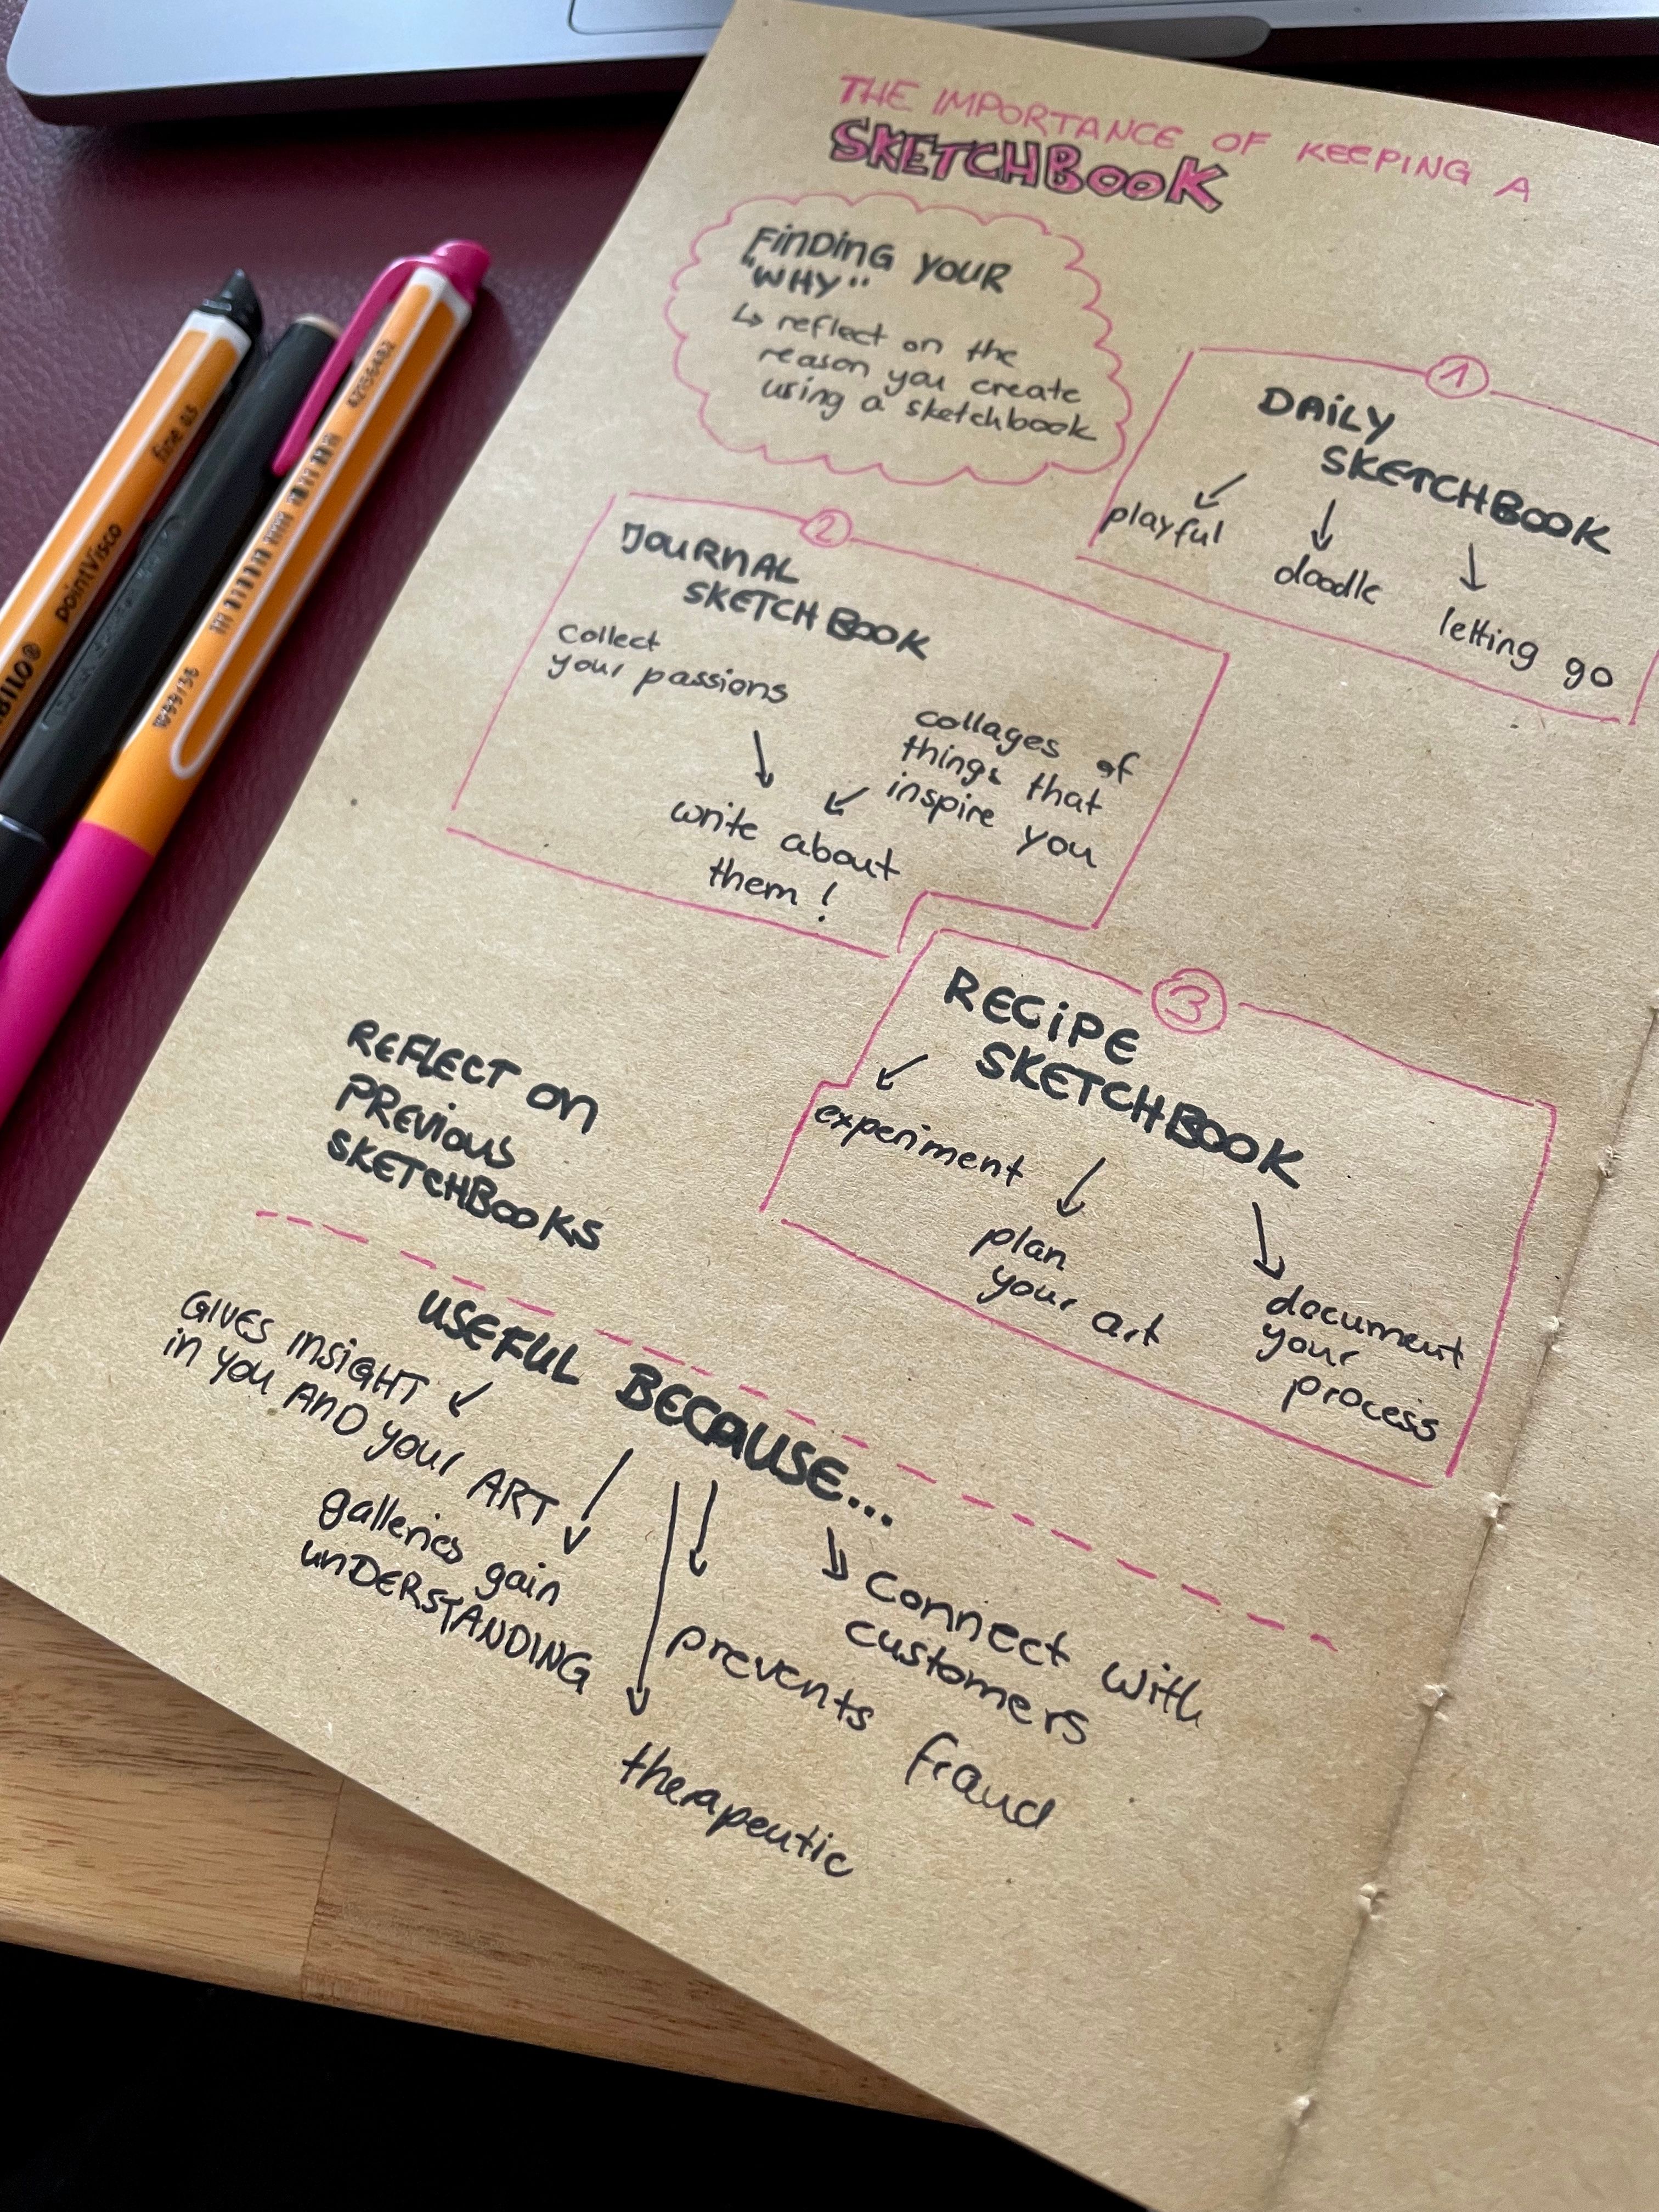 THE IMPORTANCE OF KEEPING A
SKETCHBOOK
FINDING YOUR
"WHY"
reflect on the
reason you create
using a sketchbook
1
DAILY
SKETCHBOOK
playful
doodle
letting go
2
JOURNAL
SKETCHBOOK
Collect
your passions
collages of
things that
inspire you
write about
them!
3
RECIPE
SKETCHBOOK
experiment
plan
your art
document
your
process
REFLECT ON
PREVIOUS
SKETCHBOOKS
USEFUL BECAUSE...
GIVES INSIGHT
in you AND your ART
galleries gain
UNDERSTANDING
therapeutic
prevents fraud
Connect with
customers
pointVisco
fine 0.5
1099/56